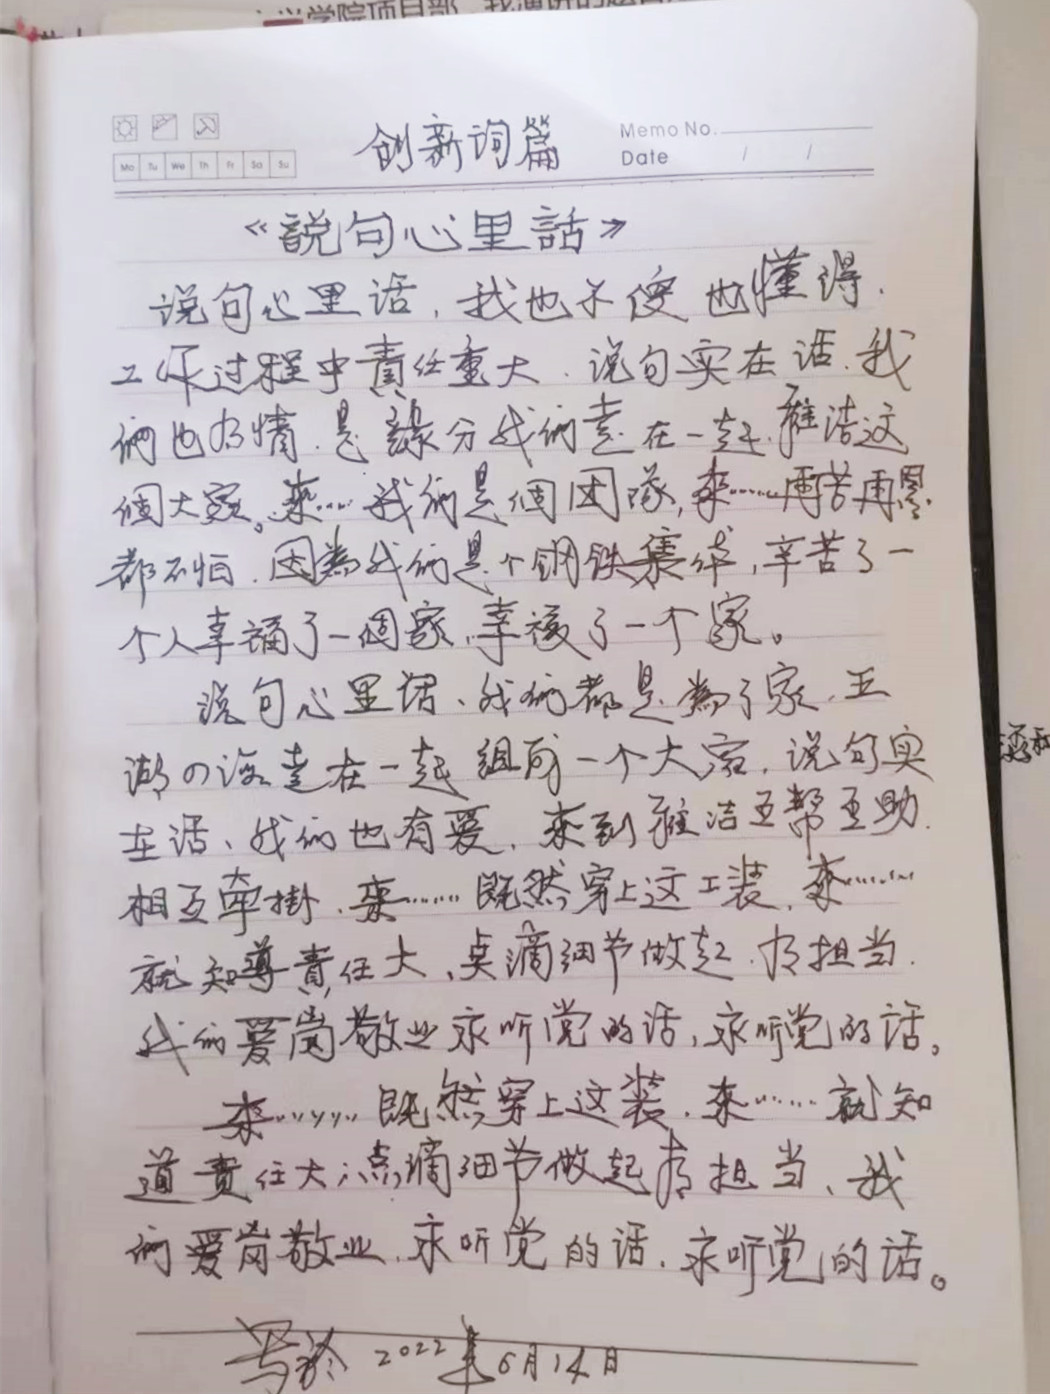 学院项目部
创新词篇
Memo No.
Mo Tu We Th Fr Sa Su
Date / /
《説句心里話》
说句心里话，我也不傻也懂得.
工作过程中責任重大.说句实在话.我
们也有情.是緣分我们走在一起.雅洁这
個大家。来……我们是個团隊,来……再苦再累
都不怕.因為我们是个钢铁集体,辛苦了一
个人幸福了一個家,幸福了一个家。
说句心里话、我们都是為了家.五
湖の海走在一起组成一个大家.说句实
在话、我们也有爱.来到雅洁互帮互助.
相互牵掛.来……既然穿上这工装.来……
就知道責任大、点滴细节做起.有担当.
我们爱岗敬业永听党的话,永听党的话。
来……既然穿上这装.来……就知
道責任大、点滴细节做起有担当、我
们爱岗敬业.永听党的话.永听党的话。
2022年6月14日